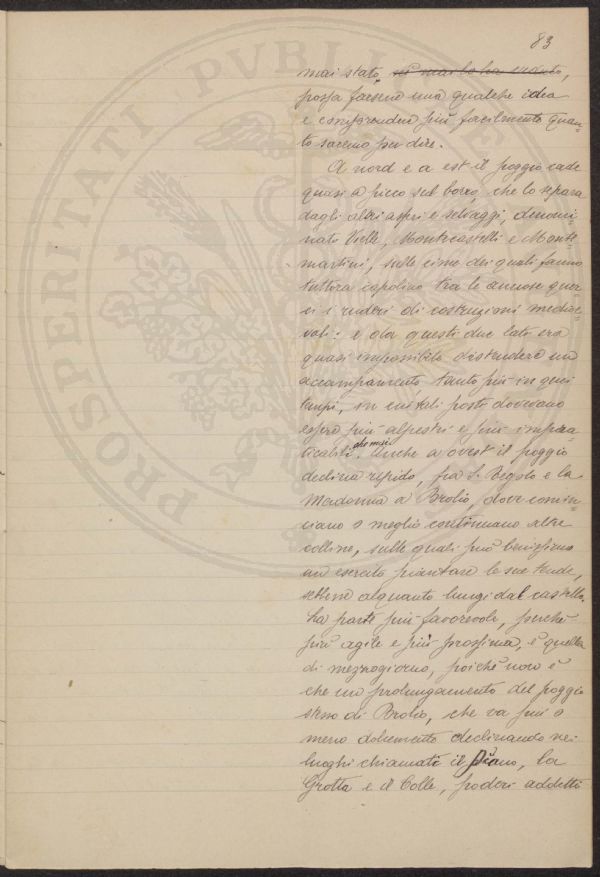 83
mai stato, nè mai lo ha veduto,
possa farsene una qualche idea
e comprendere più facilmente quan=
to saremo per dire.
A nord e a est il poggio cade
quasi a picco sul borro, che lo separa
dagli altri aspri e selvaggi, denomi=
nati Vielle, Montecastelli e Monte=
martini, sulle cime dei quali fanno
tuttora capolino tra le annose quer
ci i ruderi di costruzioni medioe=
vali: e da questi due lati era
quasi impossibile distendere un
accampamento tanto più in quei
tempi, in cui tali posti dovevano
essere più alpestri e più imprat=
ticabili che mai. Anche a ovest il poggio
declina ripido, fra S. Regolo e la
Madonna a Brolio, dove comin=
ciano o meglio continuano altre
colline, sulle quali può benissimo
un esercito piantare le sue tende,
sebbene alquanto lungi dal castello.
La parte più favorevole, perchè
più agile e più prossima, è quella
di mezzogiorno, poichè non è
che un prolungamento del poggio
stesso di Brolio, che va più o
meno dolcemente declinando nei
luoghi chiamati il Piano, la
Grotta e il Colle, poderi addetti
PROSPERITATI PVBLI